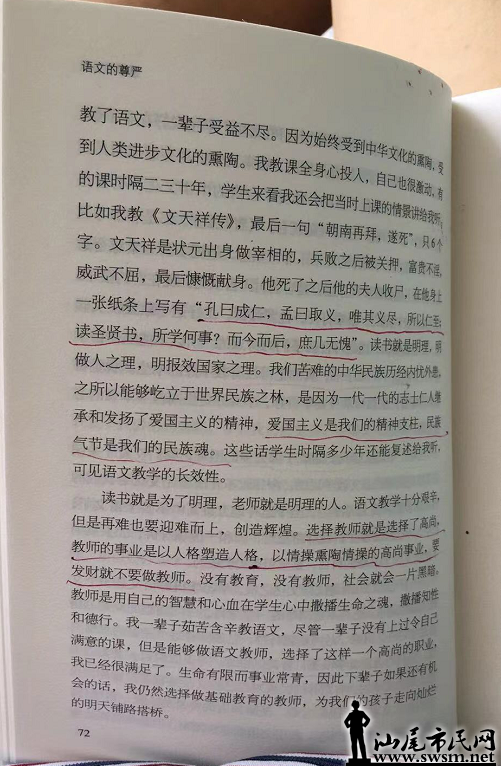 语文的尊严
教了语文，一辈子受益不尽。因为始终受到中华文化的熏陶，受
到人类进步文化的熏陶。我教课全身心投入，自己也很激动，有
的课时隔二三十年，学生来看我还会把当时上课的情景讲给我听。
比如我教《文天祥传》，最后一句“朝南再拜，遂死”，只6个
字。文天祥是状元出身做宰相的，兵败之后被关押，富贵不淫，
威武不屈，最后慷慨献身。他死了之后他的夫人收尸，在他身上
一张纸条上写有“孔曰成仁，孟曰取义，唯其义尽，所以仁至；
读圣贤书，所学何事？而今而后，庶几无愧”。读书就是明理，明
做人之理，明报效国家之理。我们苦难的中华民族历经内忧外患，
之所以能够屹立于世界民族之林，是因为一代一代的志士仁人继
承和发扬了爱国主义的精神，爱国主义是我们的精神支柱，民族
气节是我们的民族魂。这些话学生时隔多少年还能复述给我听，
可见语文教学的长效性。
读书就是为了明理，老师就是明理的人。语文教学十分艰辛，
但是再难也要迎难而上，创造辉煌。选择教师就是选择了高尚，
教师的事业是以人格塑造人格，以情操熏陶情操的高尚事业，要
发财就不要做教师。没有教育，没有教师，社会就会一片黑暗。
教师是用自己的智慧和心血在学生心中撒播生命之魂，撒播知性
和德行。我一辈子茹苦含辛教语文，尽管一辈子没有上过令自己
满意的课，但是能够做语文教师，选择了这样一个高尚的职业，
我已经很满足了。生命有限而事业常青，因此下辈子如果还有机
会的话，我仍然选择做基础教育的教师，为我们的孩子走向灿烂
的明天铺路搭桥。
72
汕尾市民网
www.swsm.net